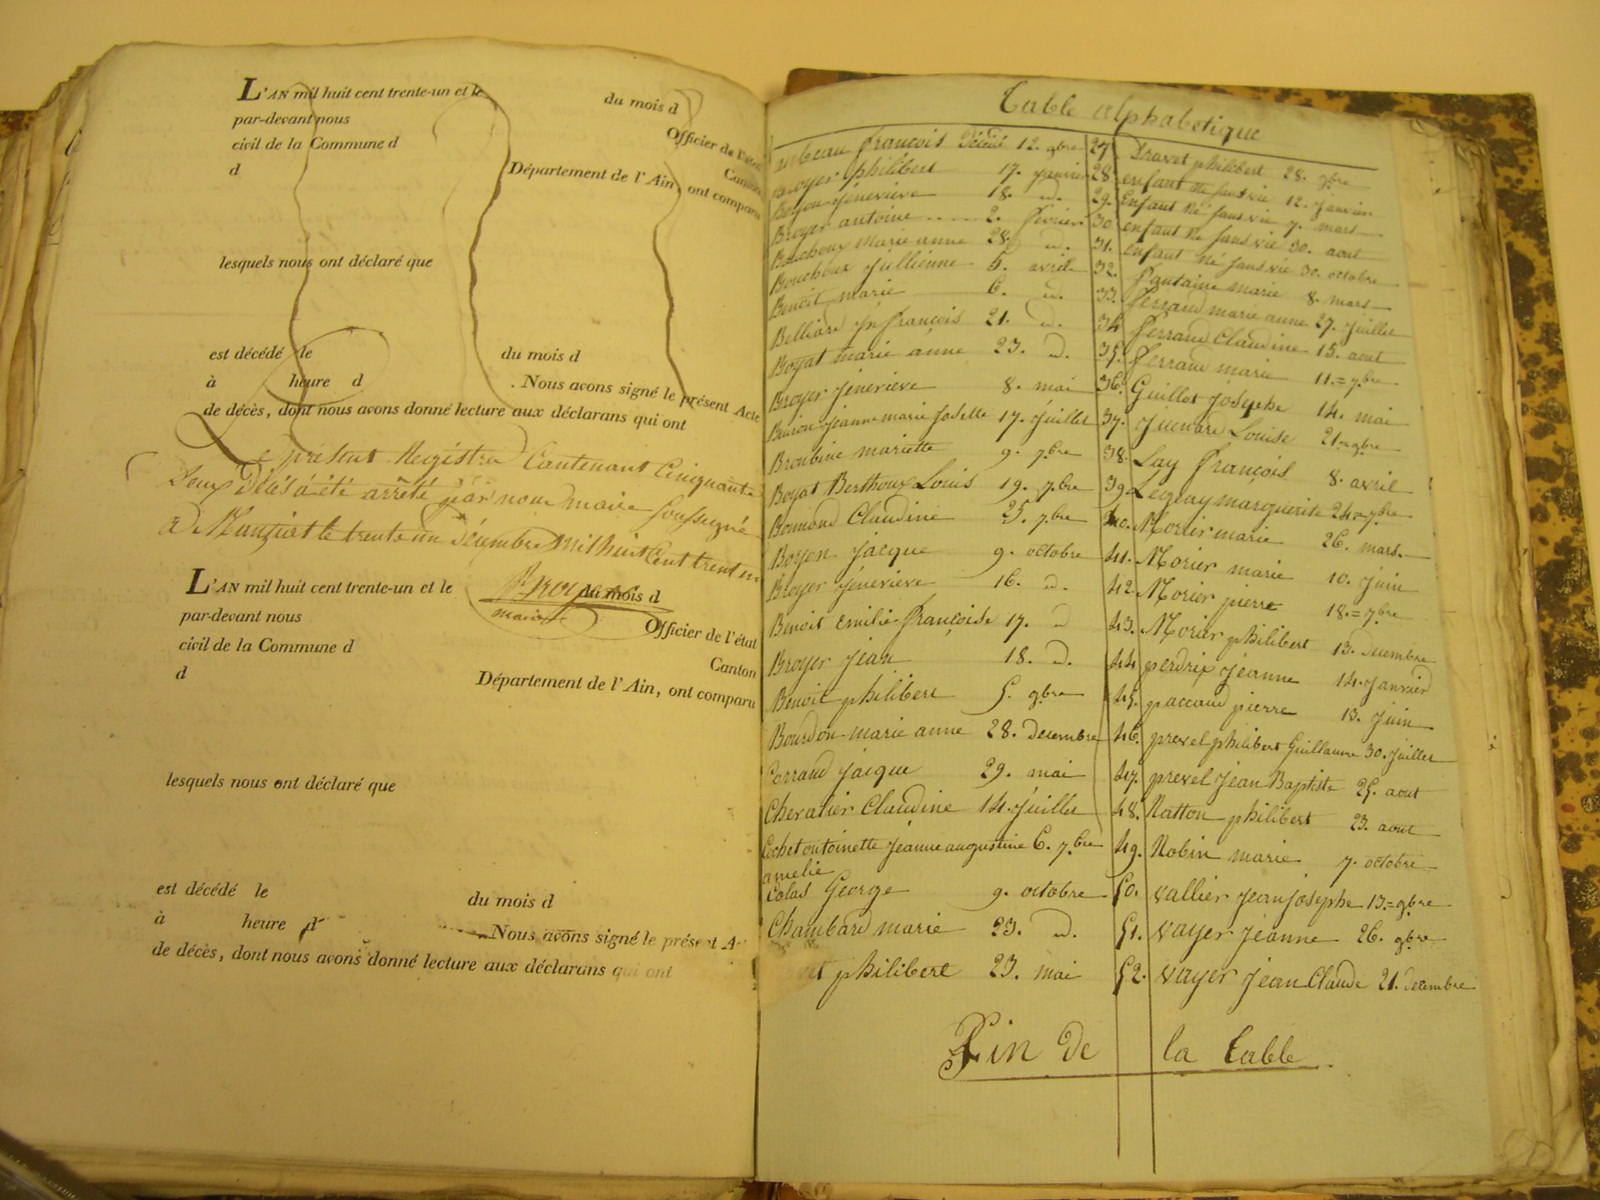 L'AN mil huit cent trente-un et le du mois d
par-devant nous Officier de l'état
civil de la Commune d Canton
d Département de l'Ain, ont comparu
lesquels nous ont déclaré que
est décédé le du mois d
à heure d . Nous avons signé le présent Acte
de décès, dont nous avons donné lecture aux déclarans qui ont
Le présent Registre Contenant Cinquante
Deux Décès a été arrêté par nous maire soussigné
a Manziat le trente un décembre mil huit Cent trent un
L'AN mil huit cent trente-un et le du mois d
maire
par-devant nous Officier de l'état
civil de la Commune d Canton
d Département de l'Ain, ont comparu
lesquels nous ont déclaré que
est décédé le du mois d
à heure d Nous avons signé le présent A
de décès, dont nous avons donné lecture aux déclarans qui ont
Table alphabetique
françois Décédé 12. gbre
Broyer philibert 17. janvier
Boyon jéneviève 18. d.
Broyer antoine ..... 2. février
Bouchoux marie anne 28. d.
Bouchoux jullienne 5. avril
Benoit marie 6. d.
Belliard jn françois 21. d.
Boyat marie anne 23. d.
Broyer jéneviève 8. mai
jeanne marie josette 17. juillet
Broubine mariette 9. 7bre
Boyat Berthoux Louis 19. 7bre
Claudine 25. 7bre
Boyon jacque 9. octobre
Broyer jéneviève 16. d.
Benoit émilie françoise 17. d
Broyer jéan 18. d.
Benoit philibert 5. gbre
Bourdon marie anne 28. decembre
Carraud jacque 29. mai
Chevalier Claudine 14. juillet
Cochet antoinette jéanne augustine 6. 7bre
amelie
Colas George 9. octobre
Chambard marie 23. d.
philibert 23. mai
27. Dravet philibert 28. gbre
28. enfant né sans vie 12. janvier
29. Enfant né sans vie 7. mars
30. enfant né sans vie 30. aout
31. enfant né sans vie 30. octobre
32. fantaine marie 8. mars
33. ferraud marie anne 27. juillet
34 ferraud Claudine 15. aout
35. ferraud marie 11.= 7bre
36. Guillot joséphe 14. mai
37. Louise 21= gbre
38. Lay françois 8. avril
39. marguerite 24= 7bre
40. Morier marie 26. mars.
41. Morier marie 10. juin
42. Morier pierre 18.= 7bre
43. Morier philibert 13. decembre
44 perdrix jéanne 14. janvier
45. paccaud pierre 13. juin
46. prevel philibert Guillaume 30. juillet
47. prevel jéan Baptiste 25. aout
48. Ratton philibert 23. aout
49. Robin marie 7. octobre
50. vallier jean josephe 13.= gbre
51. vayer jéanne 26. gbre
52. vayer jéan Claude 21. decembre
Fin de la table